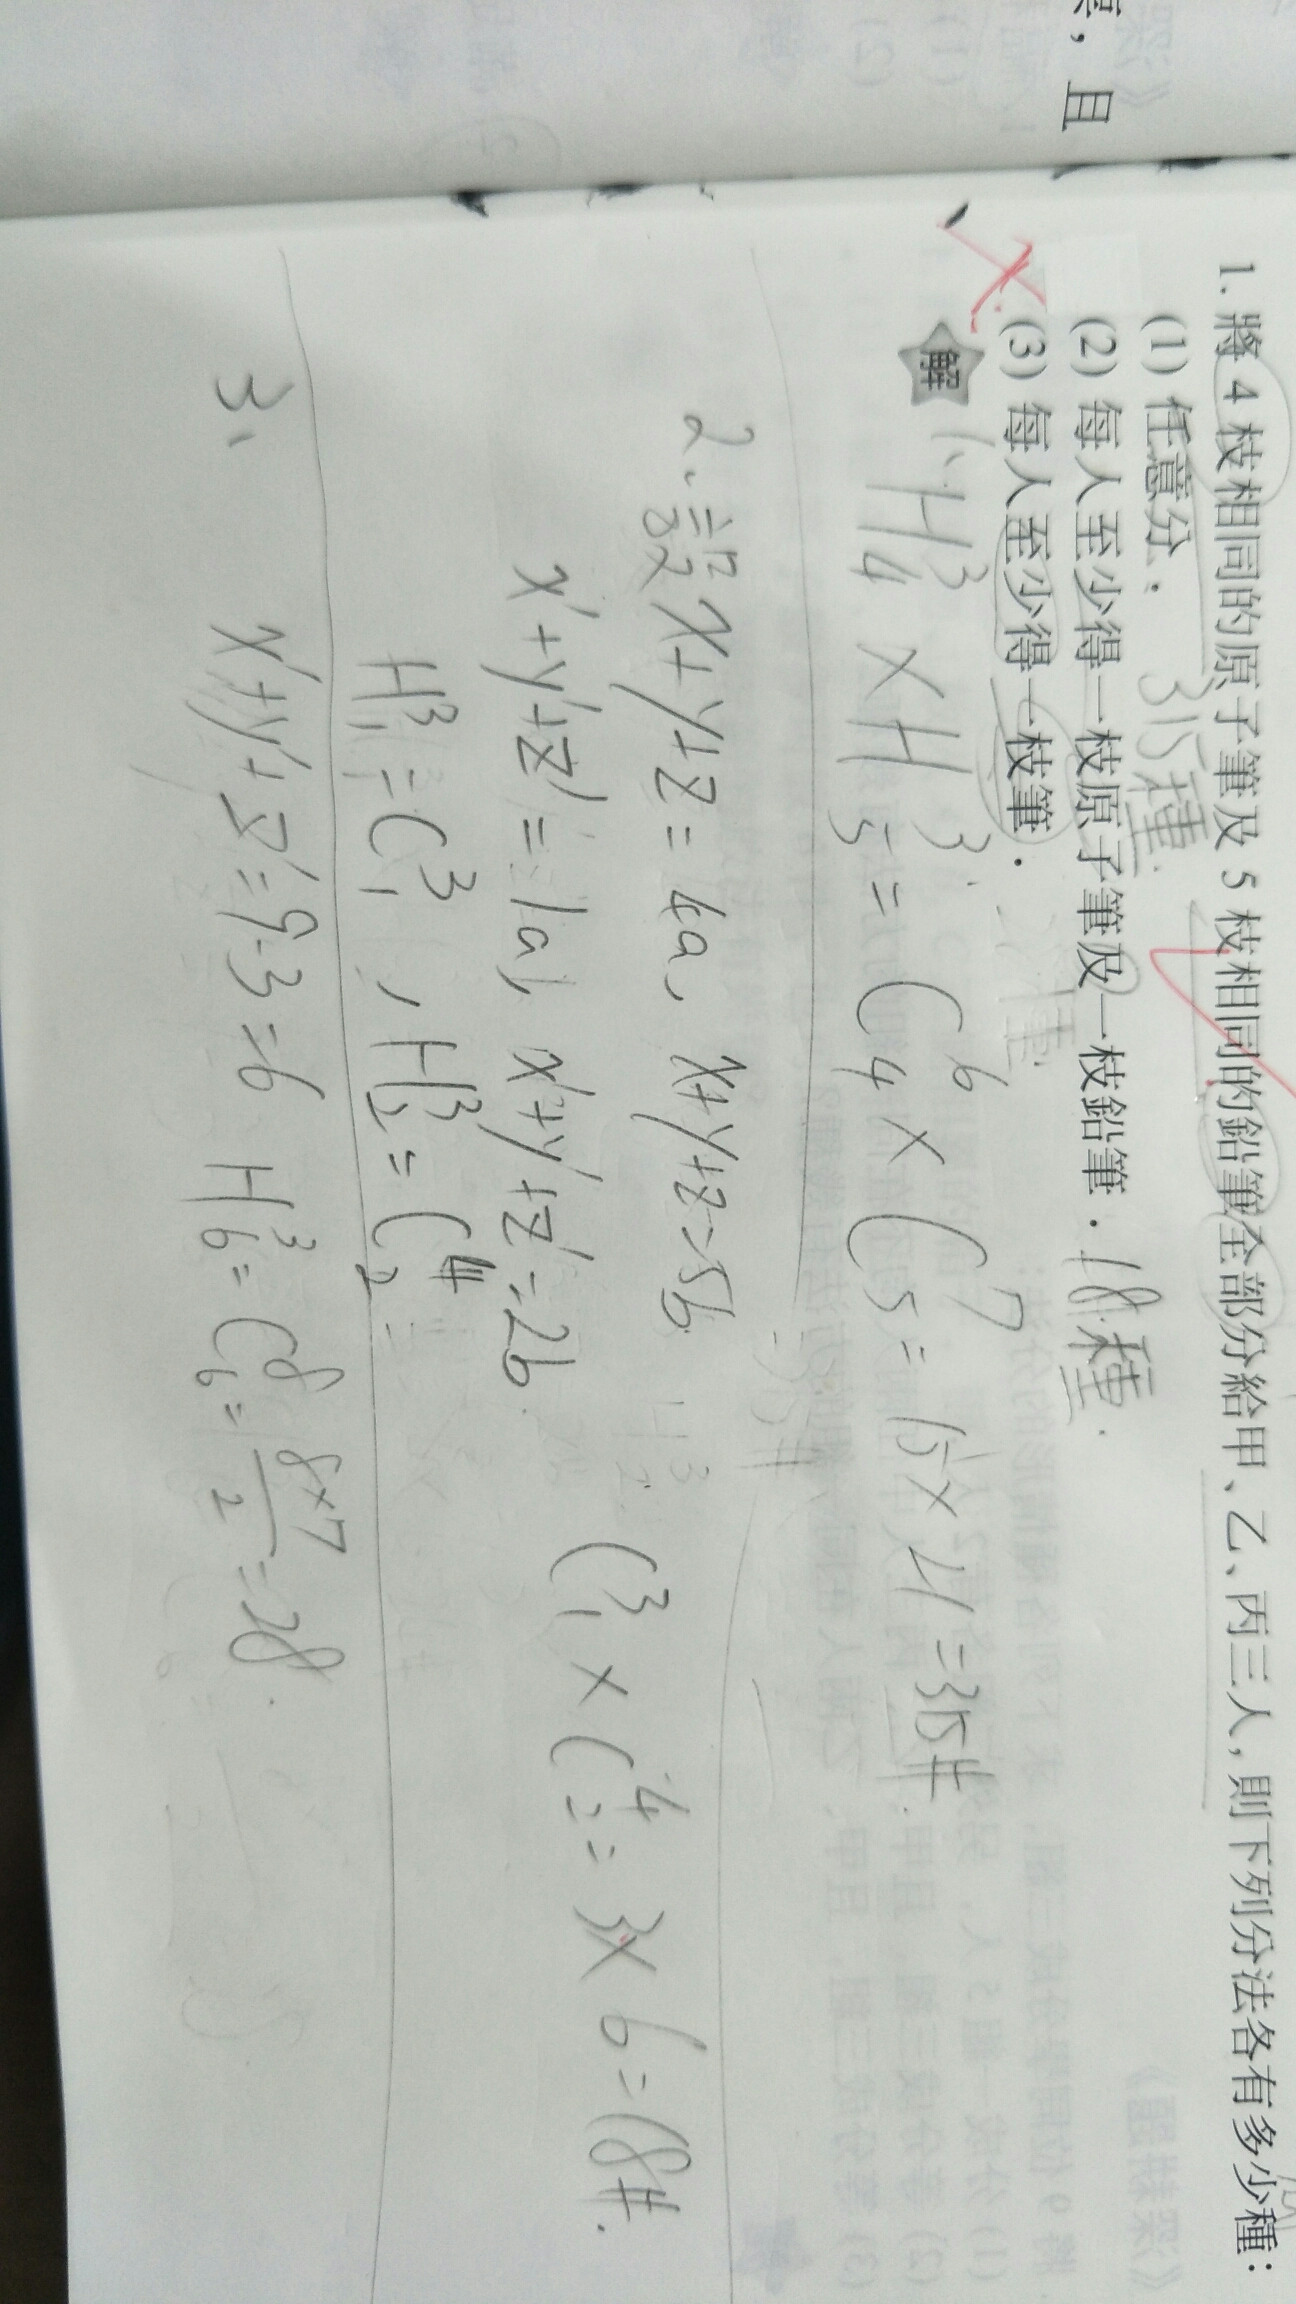 寫，且
1. 將 4 枝相同的原子筆及 5 枝相同的鉛筆全部分給甲、乙、丙三人，則下列分法各有多少種：
(1) 任意分． 315種.
(2) 每人至少得一枝原子筆及一枝鉛筆． 18種.
(3) 每人至少得一枝筆．
解
1、H³₄ × H³₅ = C⁶₄ × C⁷₅ = 15 × 21 = 315#
2、設 x+y+z = 4a、 x+y+z=5b.
x'+y'+z' = 1a、 x'+y'+z' = 2b.
H³₁ = C³₁ , H³₂ = C⁴₂ =
C³₁ × C⁴₂ = 3×6 = 18#.
3、 x'+y'+z' = 9-3 = 6 H³₆ = C⁸₆ = 8×7/2 = 28.